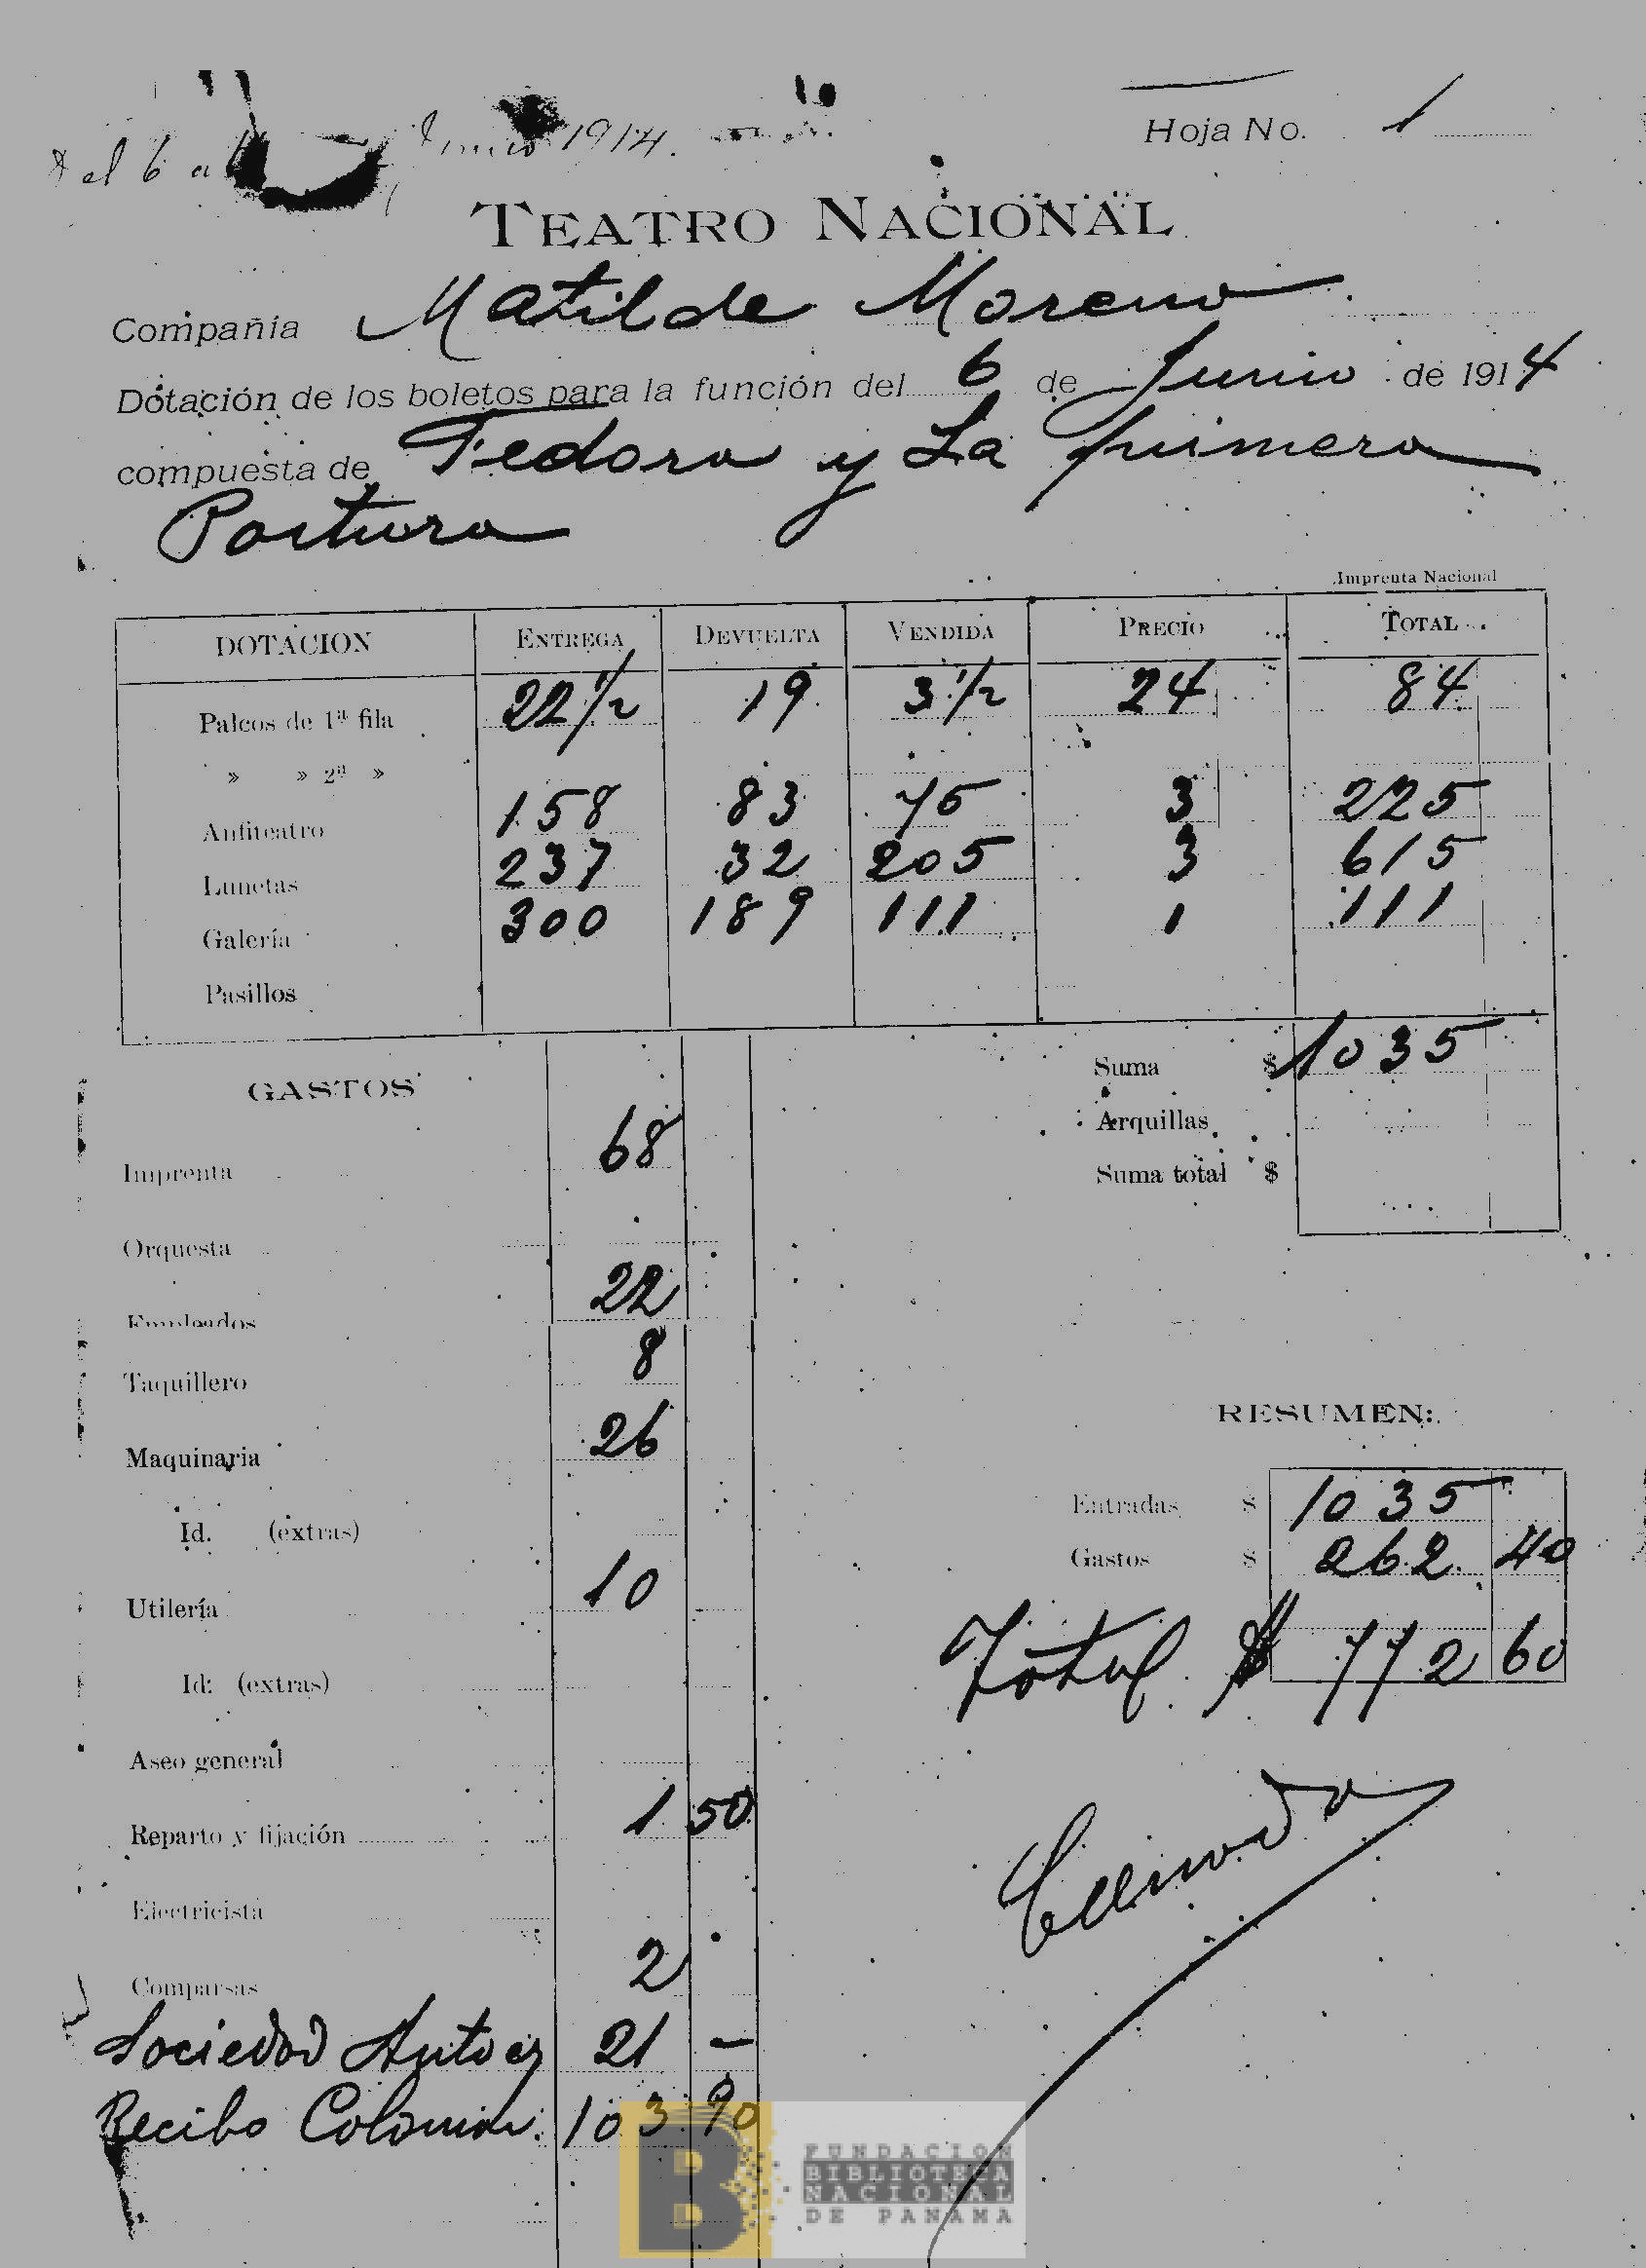 del 6 al Junio 1914.
Hoja No. 1
TEATRO NACIONAL
Compañía Matilde Moreno
Dotación de los boletos para la función del 6 de Junio de 1914
compuesta de Fedora y La primera
Postura
Imprenta Nacional
DOTACION ENTREGA DEVUELTA VENDIDA PRECIO TOTAL
Palcos de 1ª fila 22 1/2 19 3 1/2 24 84
» » 2ª »
Anfiteatro 158 83 75 3 225
Lunetas 237 32 205 3 615
Galería 300 189 111 1 111
Pasillos
Suma $ 1035
Arquillas
Suma total $
GASTOS
Imprenta 68
Orquesta
Empleados 22
Taquillero 8
Maquinaria 26
Id. (extras)
Utilería 10
Id: (extras)
Aseo general
Reparto y fijación 1 50
Electricista
Comparsas 2
Sociedad Autores 21 —
Recibo Colonia. 103 90
RESUMEN:
Entradas $ 1035
Gastos $ 262 40
Total $ 772 60
FUNDACION
BIBLIOTECA
NACIONAL
DE PANAMA